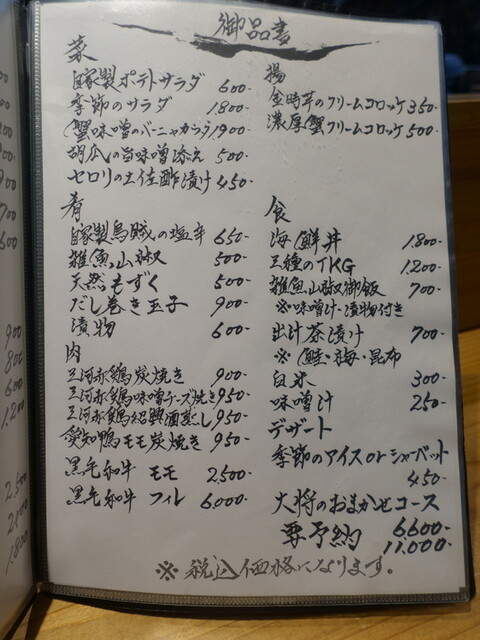 御品書
菜
自家製ポテトサラダ 600-
季節のサラダ 1800-
蟹味噌のバーニャカウダ 1,900-
胡瓜の旨味噌添え 500-
セロリの土佐酢漬け 450-
肴
自家製烏賊の塩辛 650-
雑魚山椒 500-
天然もずく 500-
だし巻き玉子 900-
漬物 600-
肉
三河赤鶏炭焼き 900-
三河赤鶏味噌チーズ焼き 950-
三河赤鶏紹興酒蒸し 950-
愛知鴨モモ炭焼き 950-
黒毛和牛 モモ 2,500-
黒毛和牛 フィレ 6,000-
揚
金時芋のクリームコロッケ 350-
濃厚蟹クリームコロッケ 500-
食
海鮮丼 1,800-
三種のTKG 1,200-
雑魚山椒御飯 700-
※味噌汁・漬物付き
出汁茶漬け 700-
※(鮭・梅・昆布
白米 300-
味噌汁 250-
デザート
季節のアイスorシャーベット
450-
大将のおまかせコース
6600-
要予約 11,000-
※ 税込価格になります。
900
800
600
1,200
2,500
1,800